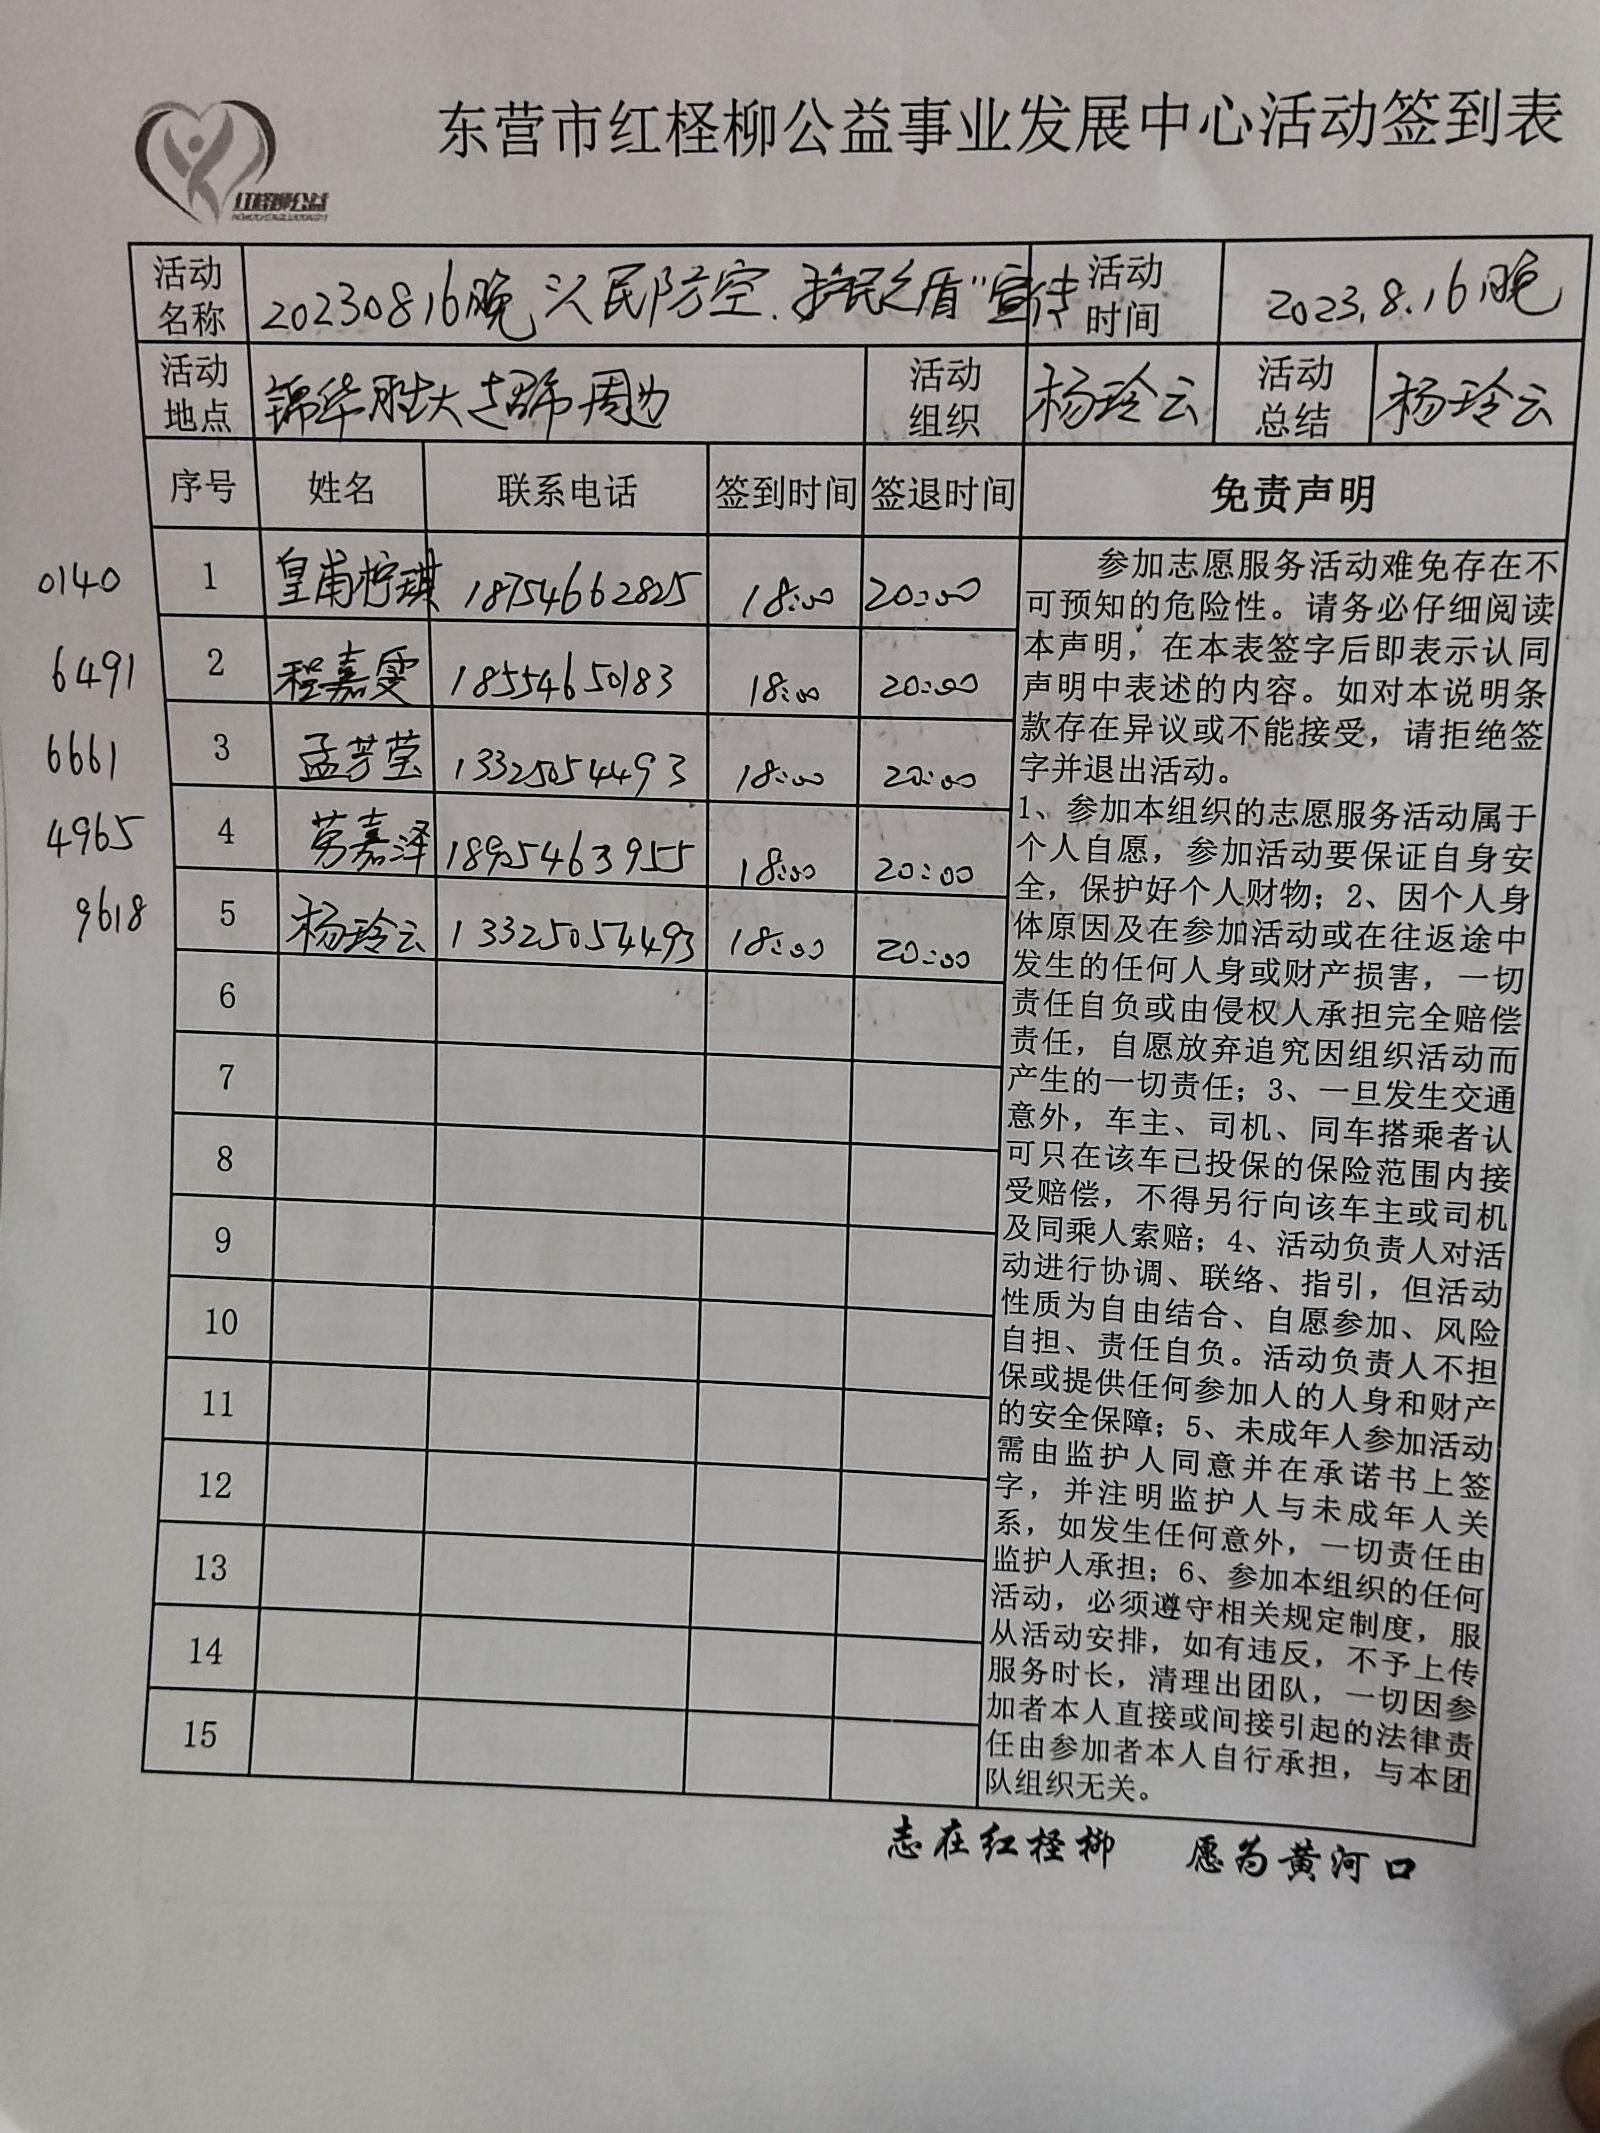 东营市红柽柳公益事业发展中心活动签到表
红柽柳公益
活动名称 20230816晚“人民防空.护民之盾”宣传 活动时间 2023.8.16晚
活动地点 锦华胜大超市周边 活动组织 杨玲云 活动总结 杨玲云
序号 姓名 联系电话 签到时间 签退时间 免责声明
0140 1 皇甫柠琪 18754662825 18:00 20:00
6491 2 程嘉雯 18554650183 18:00 20:00
6661 3 孟芳莹 13325054493 18:00 20:00
4965 4 劳嘉泽 18954639 55 18:00 20:00
9618 5 杨玲云 13325054493 18:00 20:00
6
7
8
9
10
11
12
13
14
15
参加志愿服务活动难免存在不
可预知的危险性。请务必仔细阅读
本声明，在本表签字后即表示认同
声明中表述的内容。如对本说明条
款存在异议或不能接受，请拒绝签
字并退出活动。
1、参加本组织的志愿服务活动属于
个人自愿，参加活动要保证自身安
全，保护好个人财物；2、因个人身
体原因及在参加活动或在往返途中
发生的任何人身或财产损害，一切
责任自负或由侵权人承担完全赔偿
责任，自愿放弃追究因组织活动而
产生的一切责任；3、一旦发生交通
意外，车主、司机、同车搭乘者认
可只在该车已投保的保险范围内接
受赔偿，不得另行向该车主或司机
及同乘人索赔；4、活动负责人对活
动进行协调、联络、指引，但活动
性质为自由结合、自愿参加、风险
自担、责任自负。活动负责人不担
保或提供任何参加人的人身和财产
的安全保障；5、未成年人参加活动
需由监护人同意并在承诺书上签
字，并注明监护人与未成年人关
系，如发生任何意外，一切责任由
监护人承担；6、参加本组织的任何
活动，必须遵守相关规定制度，服
从活动安排，如有违反，不予上传
服务时长，清理出团队，一切因参
加者本人直接或间接引起的法律责
任由参加者本人自行承担，与本团
队组织无关。
志在红柽柳 愿为黄河口